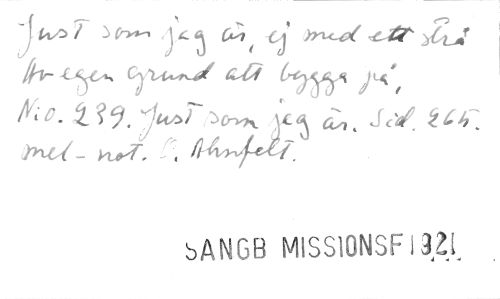 Just som jag är, ej med ett strå
Av egen grund att bygga på,
N:o. 239. Just som jag är. Sid. 265.
mel-not. O. Ahnfelt.
SANGB MISSIONSF 1921